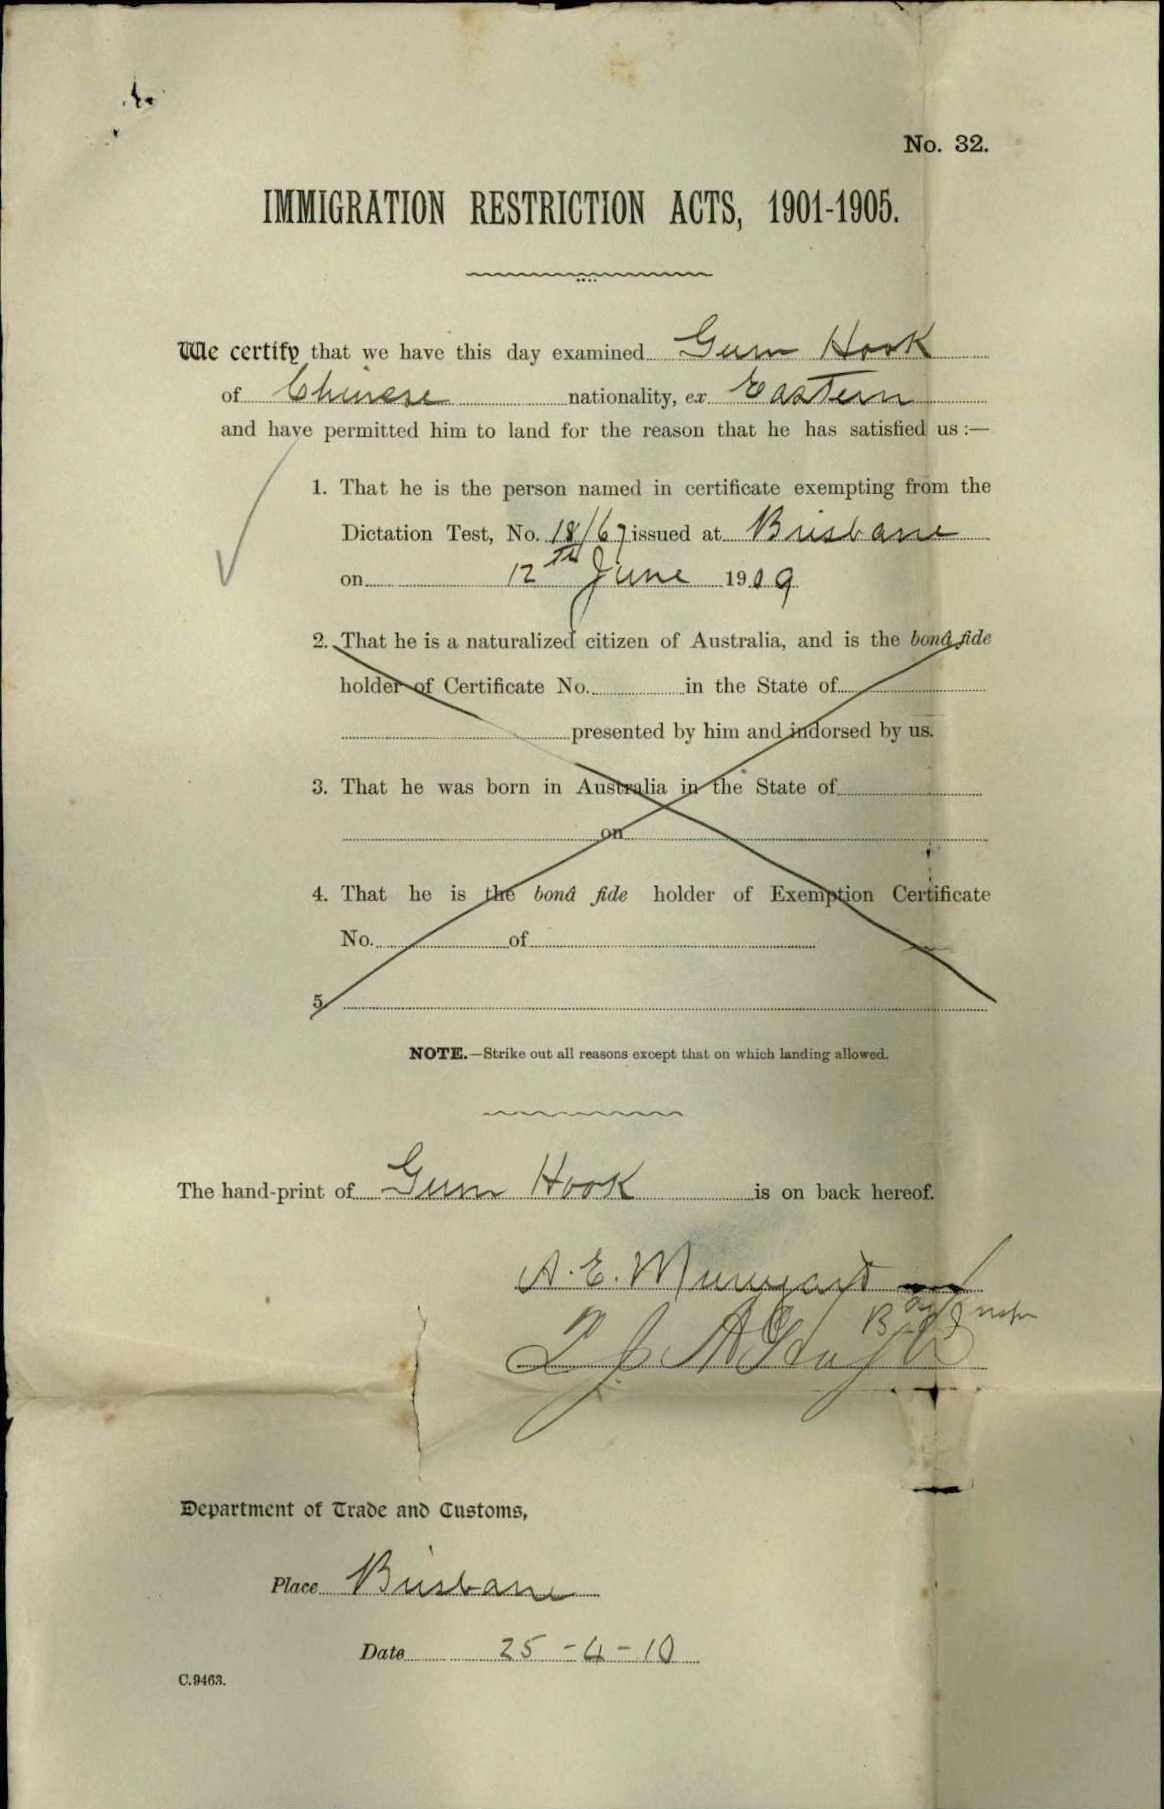 No. 32.
IMMIGRATION RESTRICTION ACTS, 1901-1905.
We certify that we have this day examined Gum Hook
of Chinese nationality, ex Eastern
and have permitted him to land for the reason that he has satisfied us :—
1. That he is the person named in certificate exempting from the
Dictation Test, No. 18/67 issued at Brisbane
on 12th June 1909
2. That he is a naturalized citizen of Australia, and is the bonâ fide
holder of Certificate No. in the State of
presented by him and indorsed by us.
3. That he was born in Australia in the State of
on
4. That he is the bonâ fide holder of Exemption Certificate
No. of
5.
NOTE.—Strike out all reasons except that on which landing allowed.
The hand-print of Gum Hook is on back hereof.
A. E.
Department of Trade and Customs,
Place Brisbane
Date 25-4-10
C.9463.